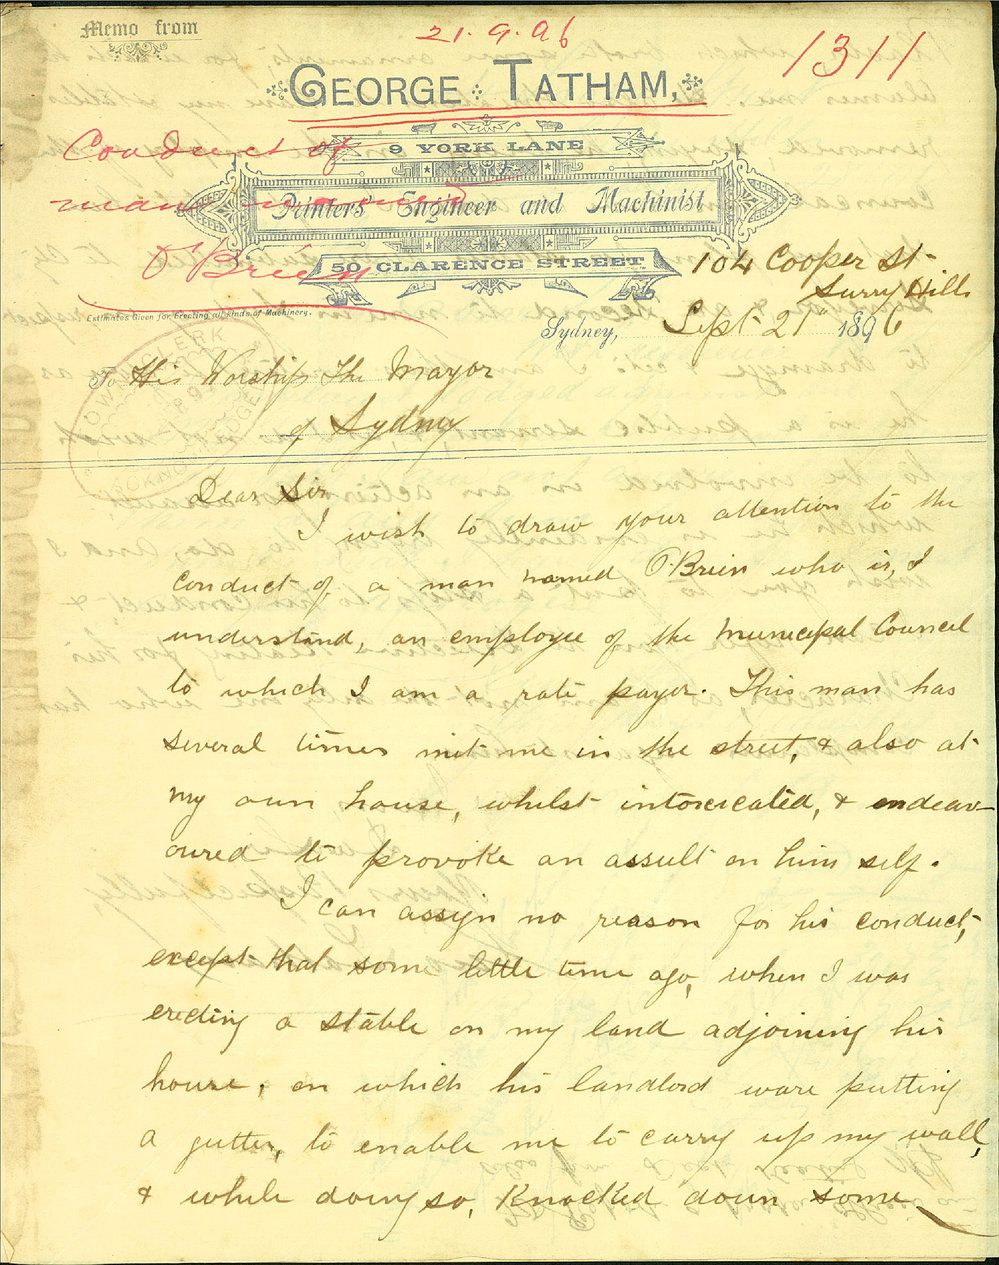 Memo from
21.9.96
1311
GEORGE TATHAM,
Conduct of
9 YORK LANE
man named
Printers' Engineer and Machinist
O'Brien
50 CLARENCE STREET
104 Cooper St
Surry Hills
Estimates Given for Erecting all kinds of Machinery.
Sydney, Sept 21st 1896
TOWN CLERK
ACKNOWLEDGED
To His Worship The Mayor
of Sydney
Dear Sir
I wish to draw your attention to the
conduct of a man named O'Brien who is, I
understand, an employee of the Municipal Council
to which I am a rate payer. This man has
several times met me in the street, & also at
my own house, whilst intoxicated, & endeav
oured to provoke an assult on him self.
I can assign no reason for his conduct,
except that some little time ago, when I was
erecting a stable on my land adjoining his
house, on which his landlord ware putting
a gutter, to enable me to carry up my wall,
& while doing so, knocked down some